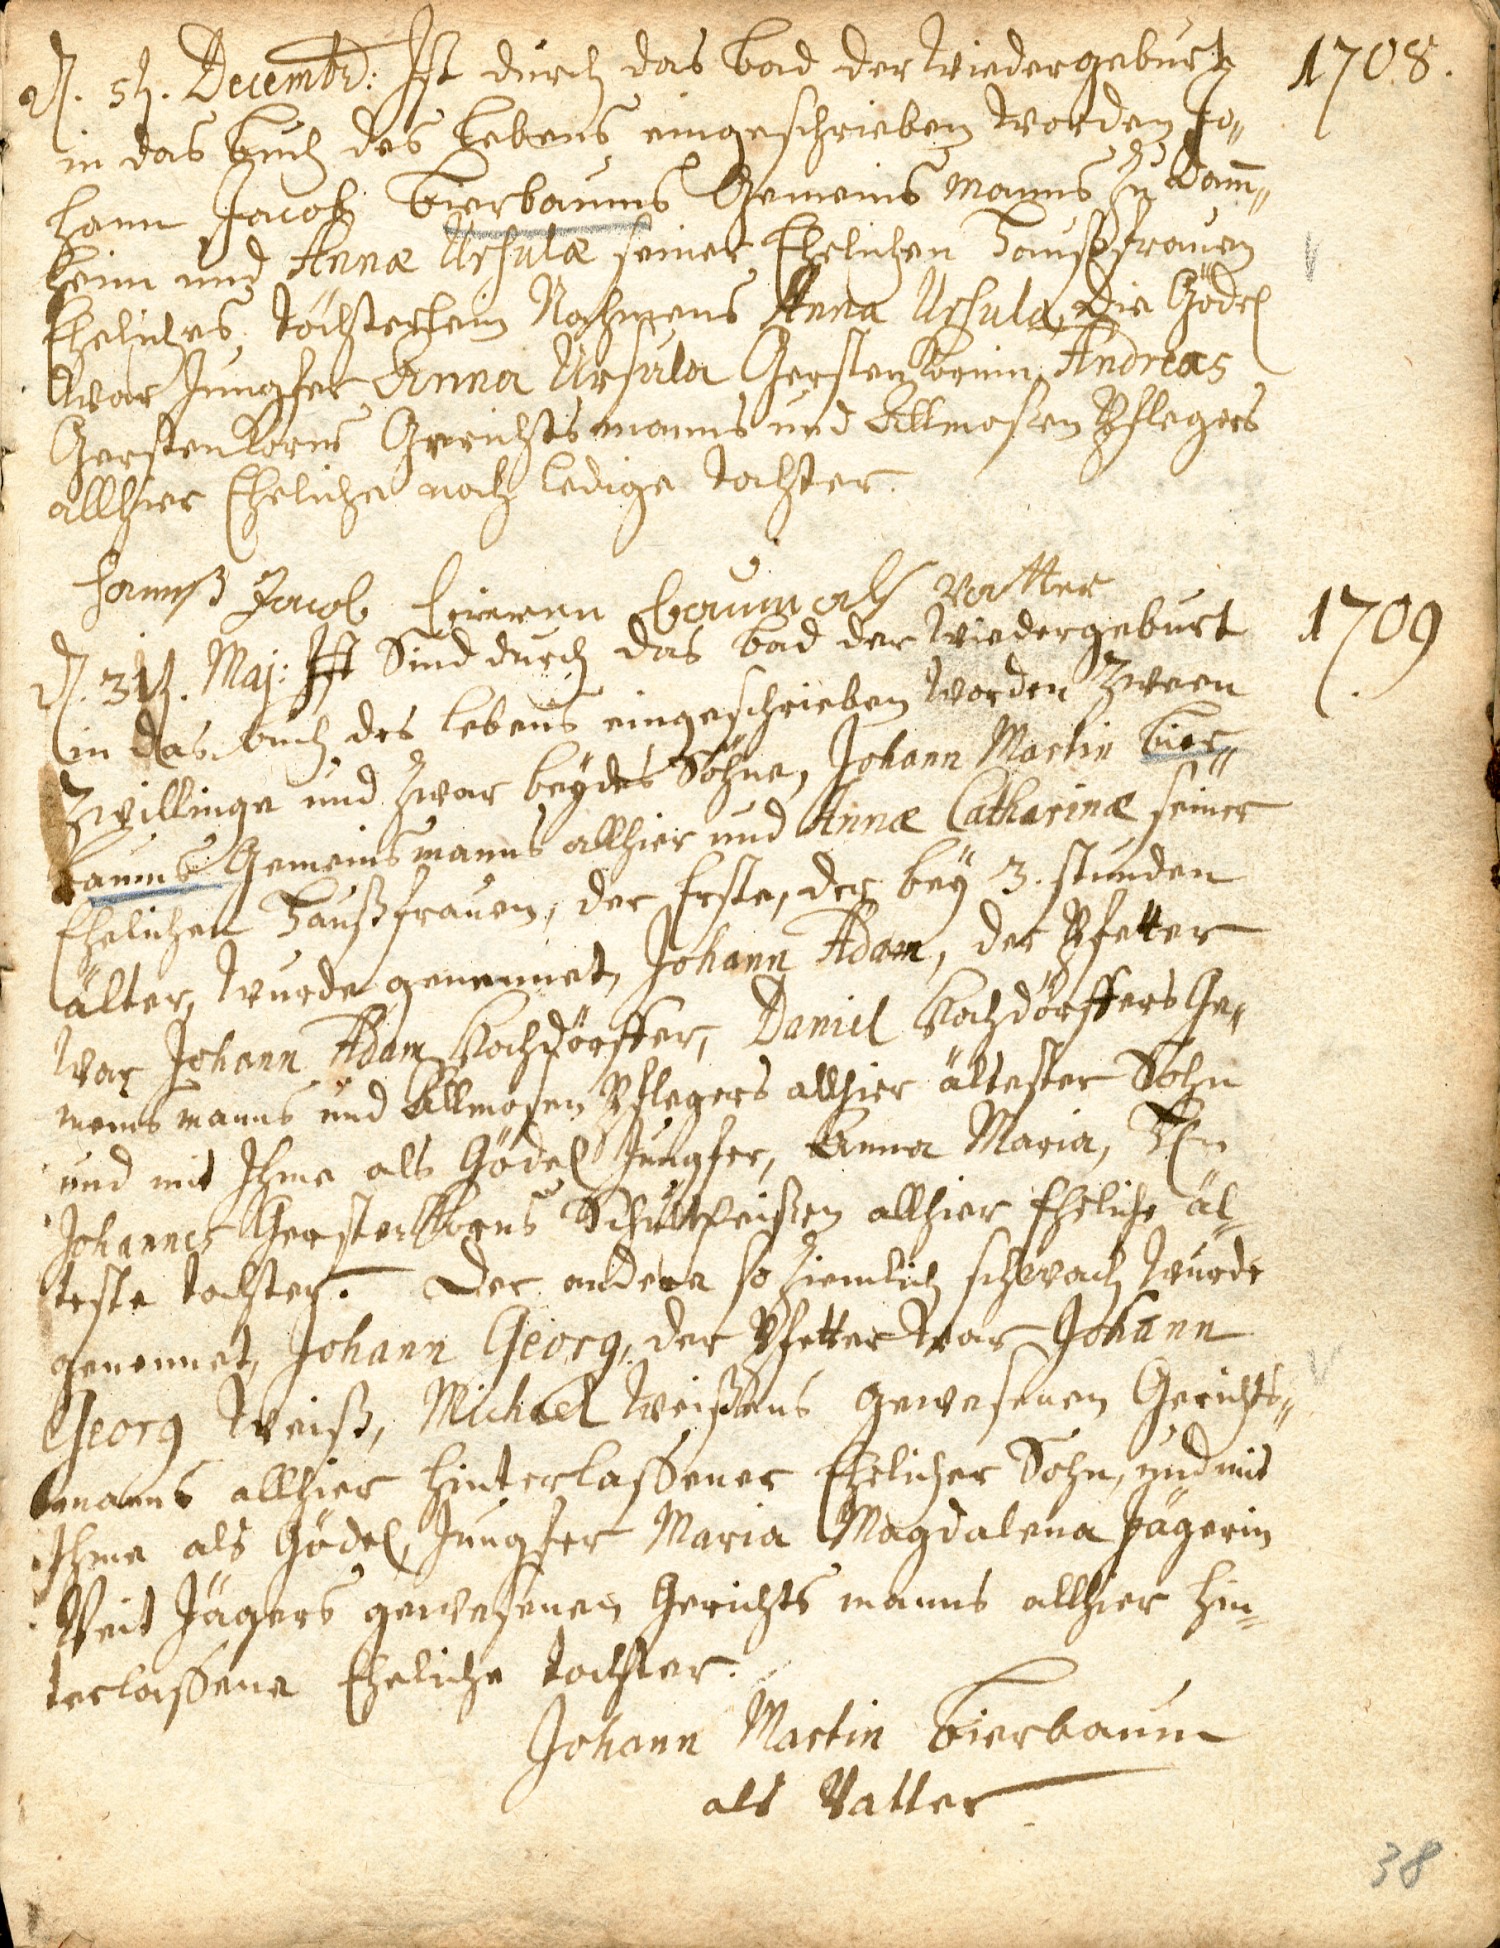 D. 5t. Decembr: Ist durch das bad der Wiedergeburt 1708.
in das buch des Lebens eingeschrieben worden Jo„
hann Jacob Bierbaums Gemeins Manns zu Dam̄„
heim und Annæ Ursulæ seiner Ehelichen Haußfrauen
Eheliches Töchterlein Nahmens Anna Ursula, die Gödel
war Jungfer Anna Ursula Gerstenkornin, Andreas
Gerstenkorns Gerichtsmanns und Allmosen Pflegers
allhier Eheliche noch ledige Tochter.
hannß Jacob bierenbaum als Vatter
D. 31t. Maj: Ist Sind durch das bad der Wiedergeburt 1709
in das buch des Lebens eingeschrieben worden Zween
Zwillinge und zwar beydes Söhne, Johann Martin Bier„
baums Gemeinsmanns allhier und Annæ Catharinæ seiner
Ehelichen Haußfrauen, der Erste, der bey 3. stunden
älter, wurde genennet, Johann Adam, der Pfetter
war Johann Adam Kochdörffer, Daniel Kochdörffers Ge„
meinsmanns und Allmosen Pflegers allhier ältester Sohn
und mit Ihme als Gödel Jungfer, Anna Maria, Hn
Johannes Gerstenkorns Schultheißen allhier Eheliche äl„
teste Tochter. Der andere so ziemlich schwach wurde
genennet, Johann Georg, der Pfetter war Johann
Georg Weiß, Michael Weißens gewesenen Gerichts„
manns allhier hinterlassener Ehelicher Sohn, und mit
Ihme als Gödel, Jungfer Maria Magdalena Jägerin
Veit Jägers gewesenen Gerichts manns allhier hin„
terlassene Eheliche Tochter.
Johann Martin Bierbaum
als Vatter
38